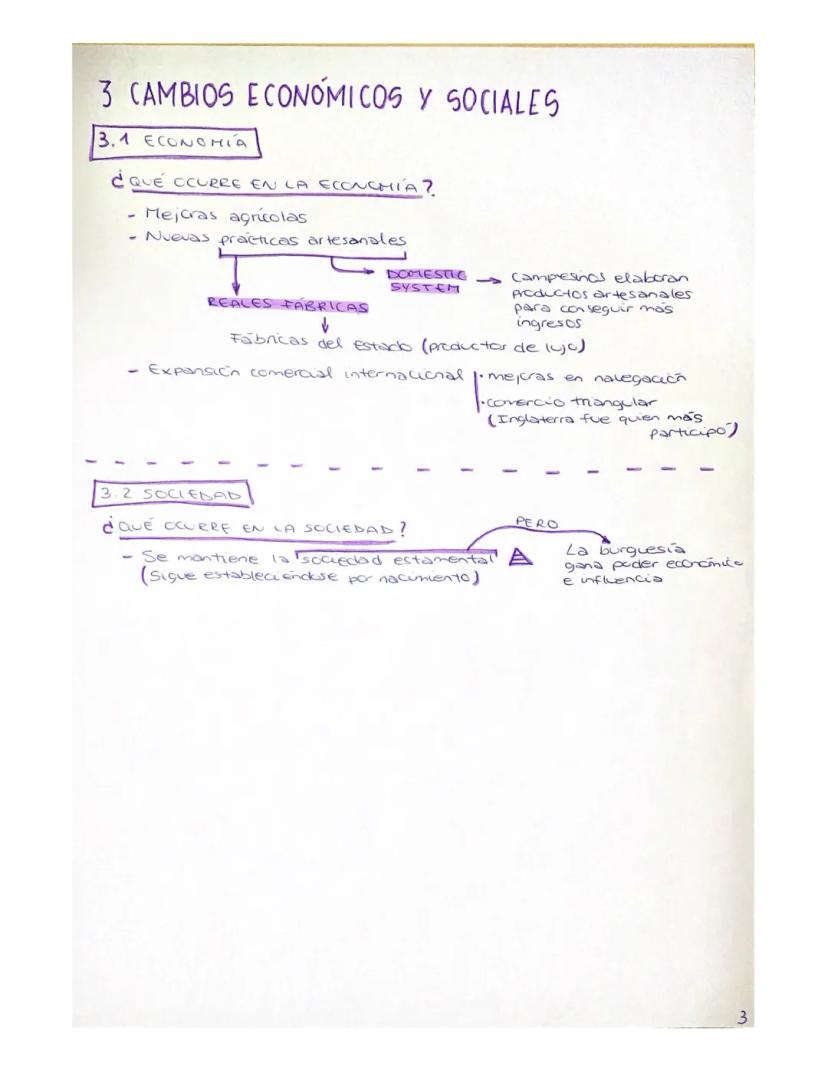 3 CAMBIOS ECONÓMICOS Y SOCIALES
3.1 ECONOMÍA
¿QUÉ OCURRE EN LA ECONOMÍA?
- Mejoras agrícolas
- Nuevas prácticas artesanales
DOMESTIC
SYSTEM
→ campesinos elaboran
productos artesanales
para conseguir más
ingresos
REALES FÁBRICAS
Fábricas del estado (productos de lujo)
- Expansión comercial internacional
· mejoras en navegación
· comercio triangular
(Inglaterra fue quien más
participó)
3.2 SOCIEDAD
¿QUÉ OCURRE EN LA SOCIEDAD?
PERO
- Se mantiene la sociedad estamental
(Sigue estableciéndose por nacimiento)
La burguesía
gana poder económico
e influencia
3